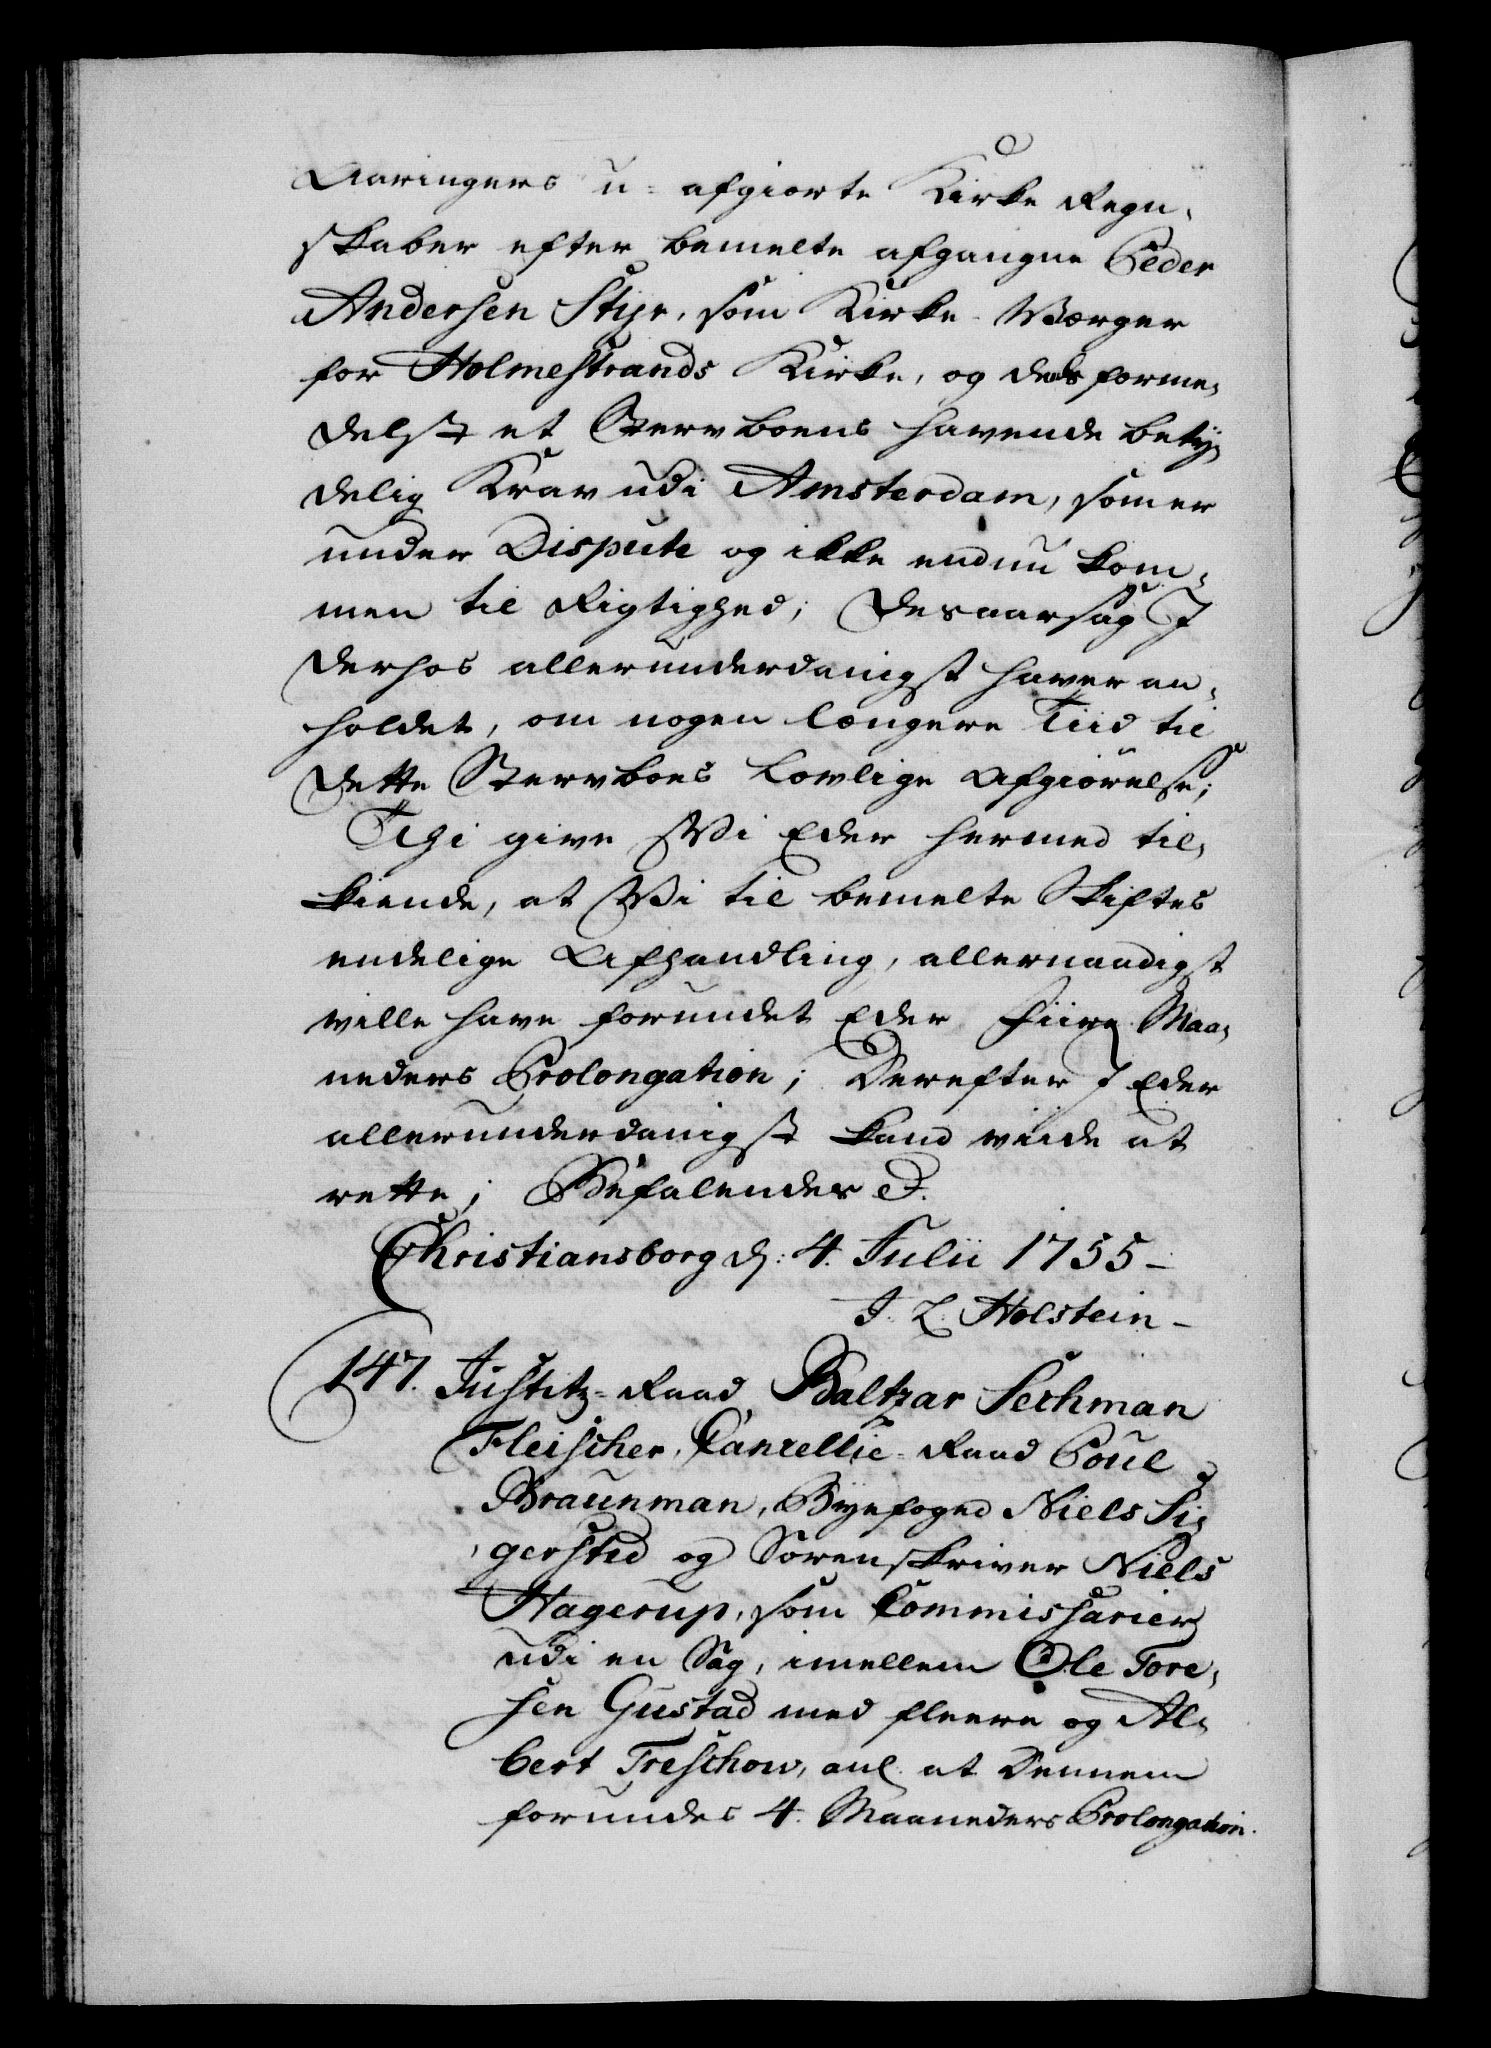 Aaringers u-afgiorte Kirke Regn-
skaber efter bemelte afgangne Peder
Andersen Styr, som Kirke-Værger
for Holmestrands Kirke, og deels forme-
delst et Stervboens havende betÿ-
delig Krav udi Amsterdam, som er
under Dispute og ikke endnu kom-
men til Rigtighed; Desaarsag I
derhos allerunderdanigst haver an-
holdet, om nogen længere Tiid til
dette Stervboes lovlige Afgiørelse;
Thi give Vi Eder hermed til-
kiende, at Vi til bemelte Skiftes
endelige Afhandling, allernaadigst
ville have forundet Eder fiire Maa-
neders Prolongation; Derefter I Eder
allerunderdanigst kand viide at
rette; Befalendes &.
Christiansborg d: 4. Julii 1755-
J. L. Holstein-
147. Justitz-Raad Baltzar Sechman
Fleischer, Cancellie-Raad Poul
Braunman, Byefoged Niels Si-
gersted og Sorenskriver Niels
Hagerup, som Commissarier
udi en Sag, imellem Ole Tore-
sen Gustad med fleere og Al-
bert Treschow, anl. at Dennem
forundes 4. Maaneders Prolongation.